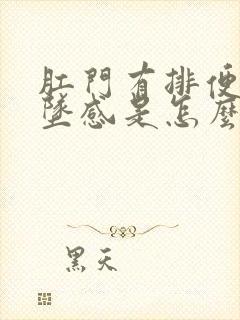 肛門有排便
墜感是怎麼
黑天